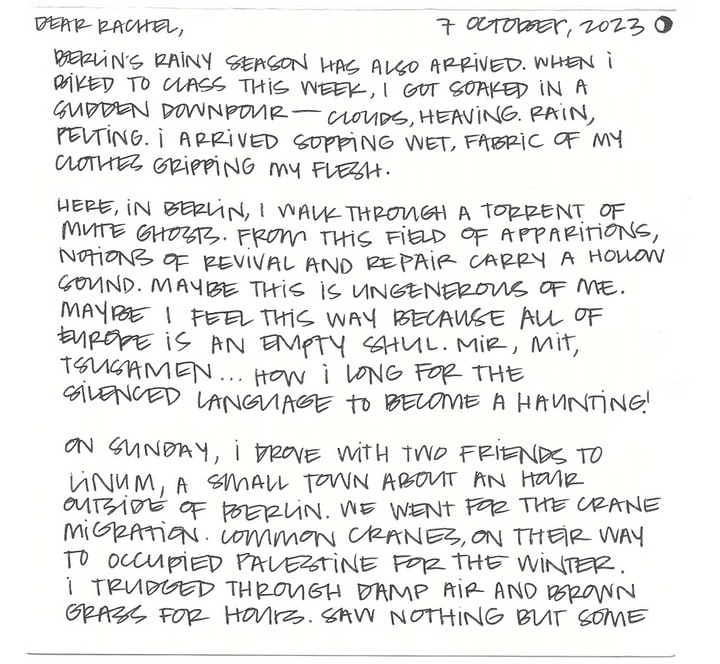 DEAR RACHEL, 7 OCTOBER, 2023
BERLIN'S RAINY SEASON HAS ALSO ARRIVED. WHEN I
BIKED TO CLASS THIS WEEK, I GOT SOAKED IN A
SUDDEN DOWNPOUR — CLOUDS, HEAVING. RAIN,
PELTING. I ARRIVED SOPPING WET, FABRIC OF MY
CLOTHES GRIPPING MY FLESH.
HERE, IN BERLIN, I WALK THROUGH A TORRENT OF
MUTE GHOSTS. FROM THIS FIELD OF APPARITIONS,
NOTIONS OF REVIVAL AND REPAIR CARRY A HOLLOW
SOUND. MAYBE THIS IS UNGENEROUS OF ME.
MAYBE I FEEL THIS WAY BECAUSE ALL OF
EUROPE IS AN EMPTY SHUL. MIR, MIT,
TSUSAMEN... HOW I LONG FOR THE
SILENCED LANGUAGE TO BECOME A HAUNTING!
ON SUNDAY, I DROVE WITH TWO FRIENDS TO
LINUM, A SMALL TOWN ABOUT AN HOUR
OUTSIDE OF BERLIN. WE WENT FOR THE CRANE
MIGRATION. COMMON CRANES, ON THEIR WAY
TO OCCUPIED PALESTINE FOR THE WINTER.
I TRUDGED THROUGH DAMP AIR AND BROWN
GRASS FOR HOURS. SAW NOTHING BUT SOME